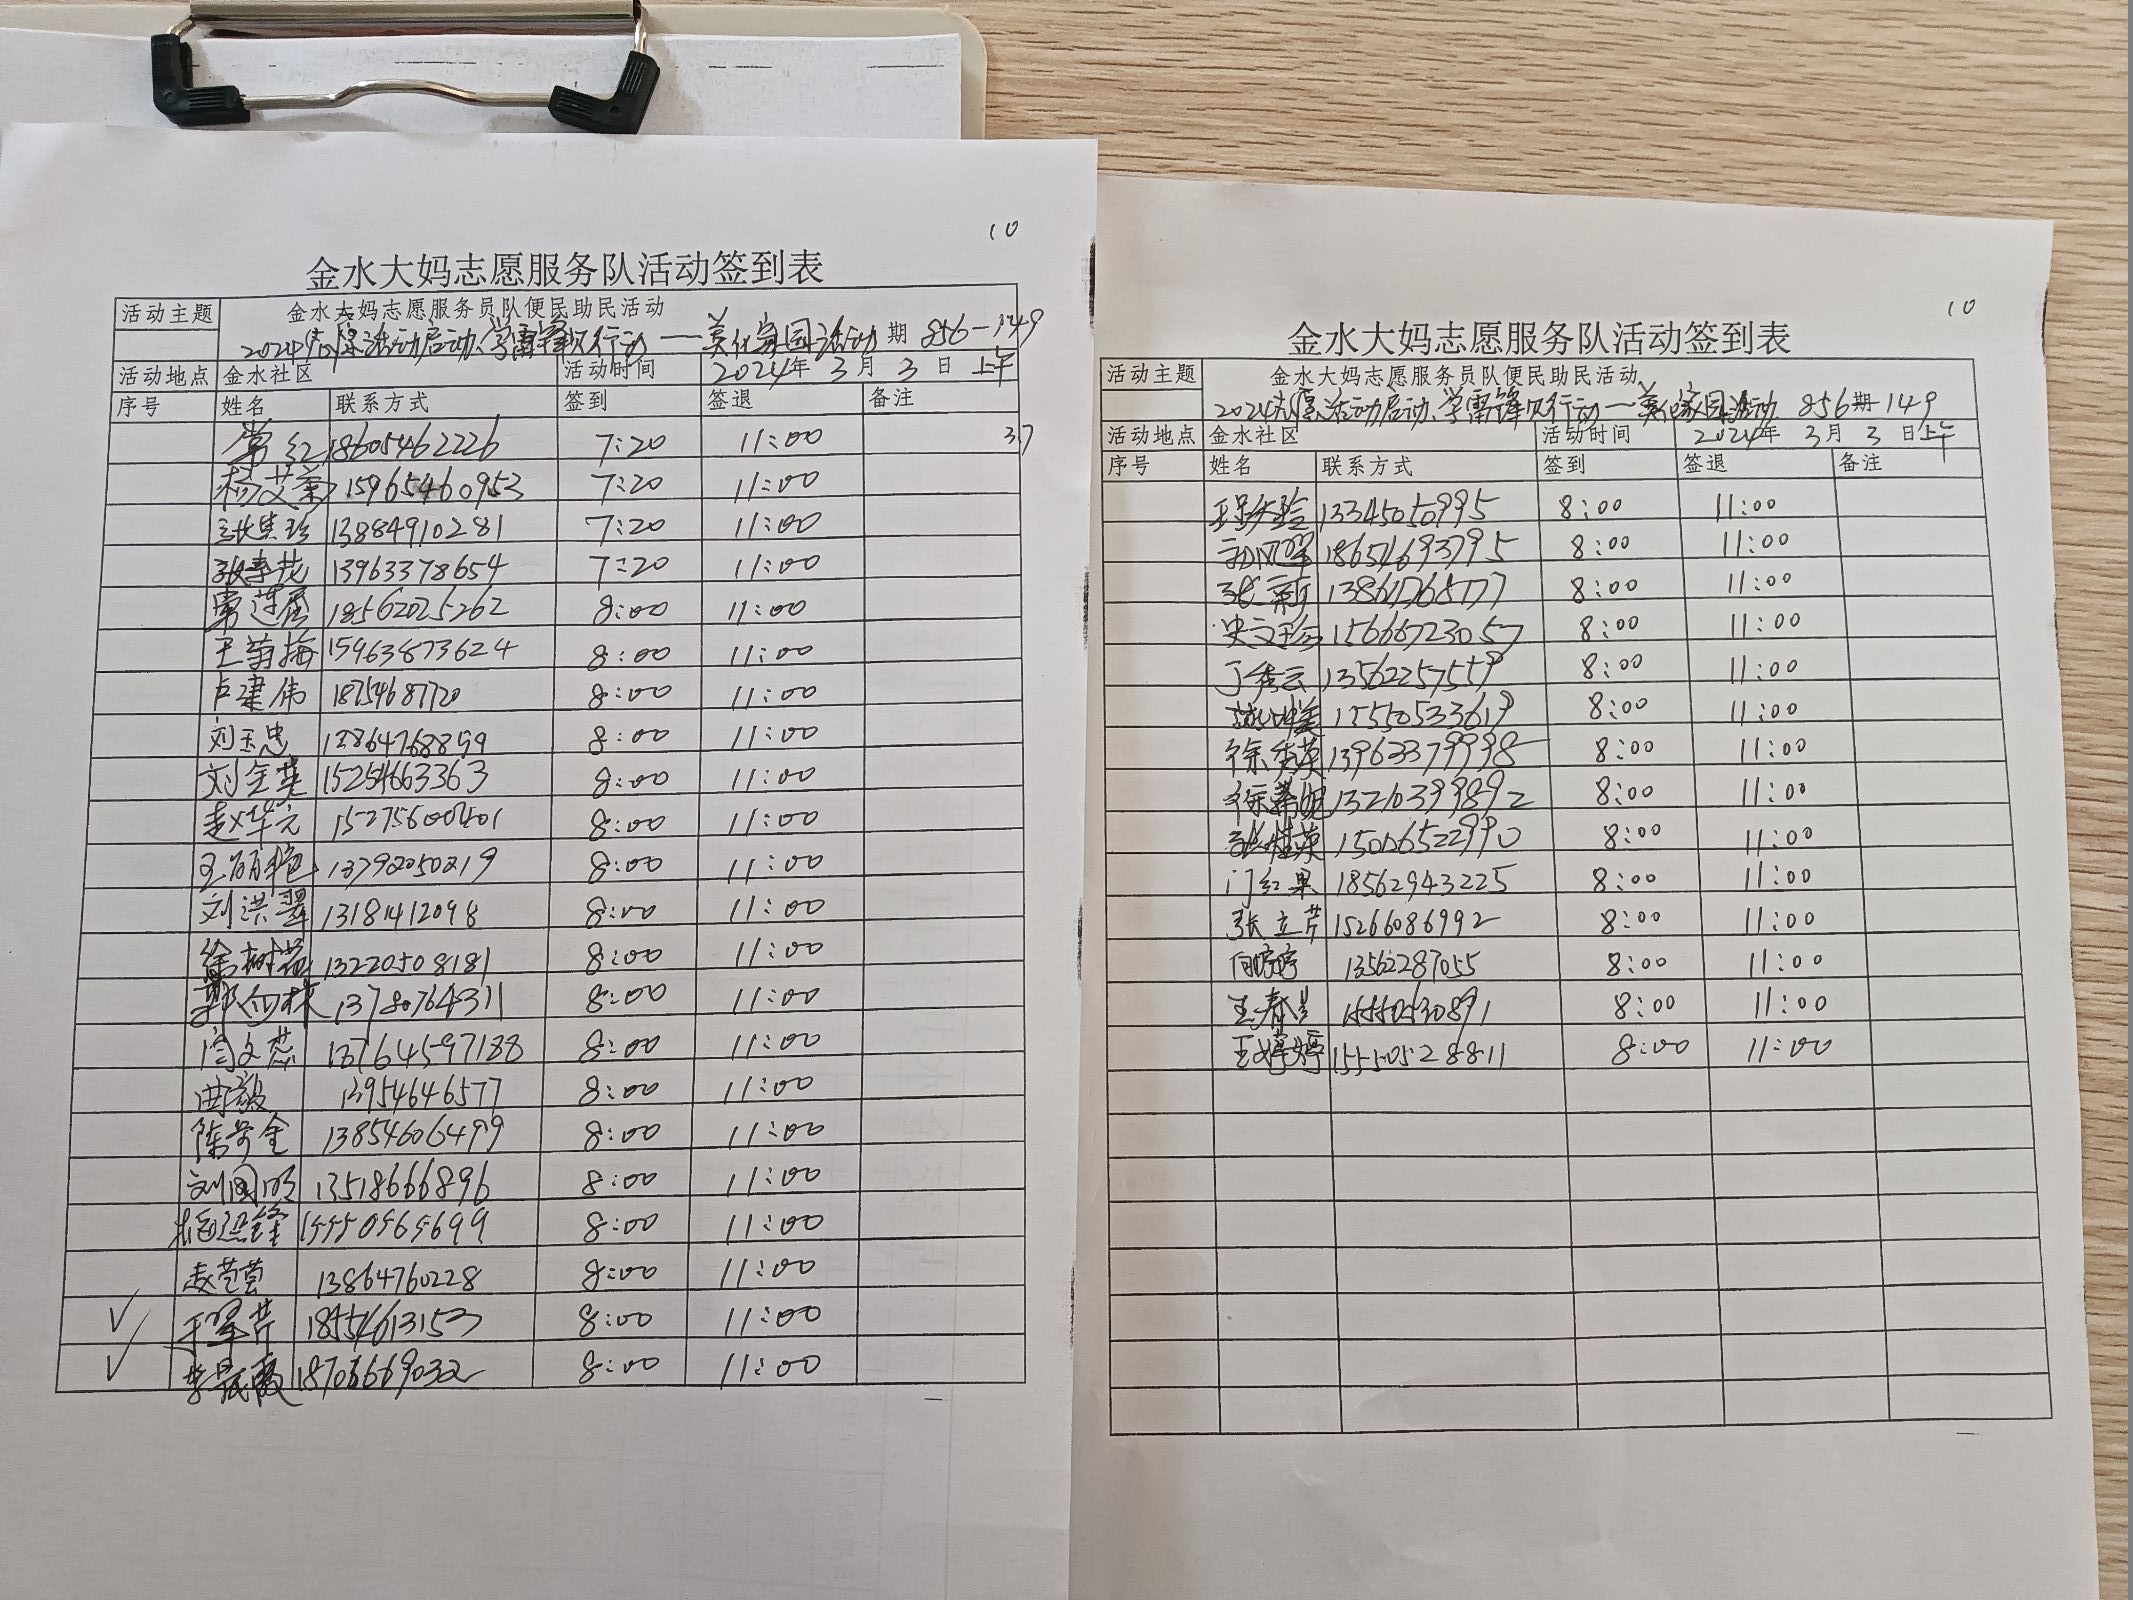 10
金水大妈志愿服务队活动签到表
活动主题 金水大妈志愿服务员队便民助民活动
2024志愿活动启动、学雷锋行动——美化家园活动 期 856-149
活动地点 金水社区 活动时间 2024年 3月 3日 上午
序号 姓名 联系方式 签到 签退 备注
常红 18605462226 7:20 11:00 37
杨艾菊 15965460953 7:20 11:00
张集珍 13884910281 7:20 11:00
张春花 13963378654 7:20 11:00
常莲香 18562025262 8:00 11:00
王菊梅 15963873624 8:00 11:00
卢建伟 18754687720 8:00 11:00
刘玉忠 8:00 11:00
刘金英 15254663363 8:00 11:00
赵华元 8:00 11:00
王丽艳 13792050219 8:00 11:00
刘洪翠 13181412098 8:00 11:00
徐树花 13220508181 8:00 11:00
郭向林 13780764311 8:00 11:00
闫文燕 8:00 11:00
曲毅 13954646577 8:00 11:00
陈学金 13854606499 8:00 11:00
刘国明 13518666896 8:00 11:00
15550565699 8:00 11:00
赵苍芸 13864760228 8:00 11:00
✓ 于翠芹 18554613153 8:00 11:00
✓ 李景霞 18706669032 8:00 11:00
10
金水大妈志愿服务队活动签到表
活动主题 金水大妈志愿服务员队便民助民活动
2024志愿活动启动、学雷锋行动——美化家园活动 856期-149
活动地点 金水社区 活动时间 2024年 3月 3日上午
序号 姓名 联系方式 签到 签退 备注
13345050995 8:00 11:00
孙凤翠 18654693795 8:00 11:00
张新 8:00 11:00
史文珍 15666723057 8:00 11:00
丁秀云 13562257559 8:00 11:00
8:00 11:00
徐秀英 13963379998 8:00 11:00
8:00 11:00
张桂英 15006522990 8:00 11:00
门红果 18562943225 8:00 11:00
张立芹 15266086992 8:00 11:00
13562287055 8:00 11:00
王春兰 15550530891 8:00 11:00
王婷婷 15550528811 8:00 11:00